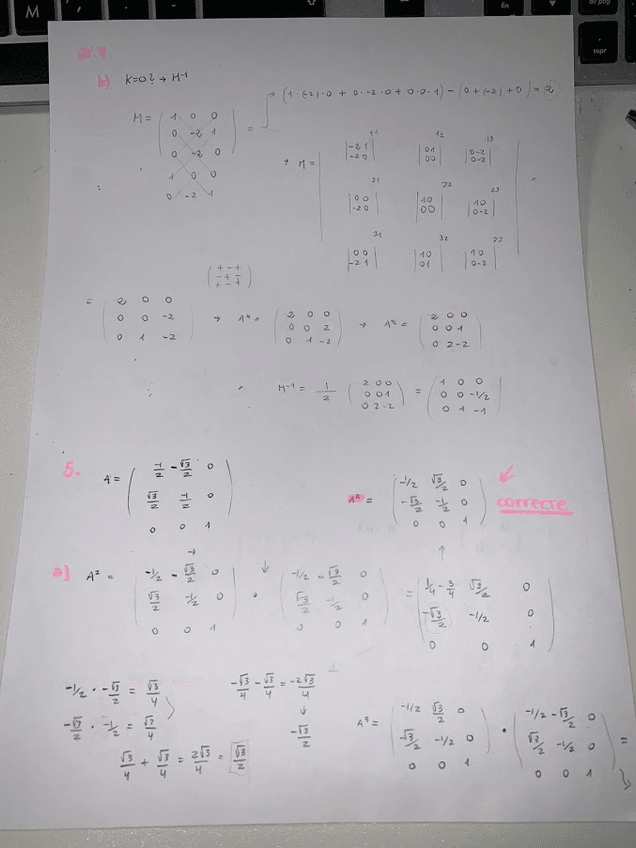 EX.4
b) K=0? → M⁻¹
(1·(-2)·0 + 0·-2·0 + 0·0·1) - (0+(-2)+0) = 2
M = ( 1 0 0
0 -2 1
0 -2 0 ) =
1 0 0
0 -2 1
→ M = ( |-2 1 / -2 0| 11 |0 1 / 0 0| 12 |0 -2 / 0 -2| 13
|0 0 / -2 0| 21 |1 0 / 0 0| 22 |1 0 / 0 -2| 23
|0 0 / -2 1| 31 |1 0 / 0 1| 32 |1 0 / 0 -2| 33 ) =
( + - +
- + -
+ - + )
= ( 2 0 0
0 0 -2
0 1 -2 ) → A* = ( 2 0 0
0 0 2
0 1 -2 ) → Aᵗ = ( 2 0 0
0 0 1
0 2 -2 )
M⁻¹ = 1/2 ( 2 0 0
0 0 1
0 2 -2 ) = ( 1 0 0
0 0 -1/2
0 1 -1 )
5.
A = ( -1/2 -√3/2 0
√3/2 -1/2 0
0 0 1 )
A² = ( -1/2 √3/2 0
-√3/2 -1/2 0
0 0 1 ) correcte
a) A² = ( -1/2 -√3/2 0
√3/2 -1/2 0
0 0 1 ) · ( -1/2 -√3/2 0
√3/2 -1/2 0
0 0 1 ) = ( 1/4 - 3/4 √3/2 0
-√3/2 -1/2 0
0 0 1 )
-1/2 · -√3/2 = √3/4
-√3/2 · -1/2 = √3/4
√3/4 + √3/4 = 2√3/4 = √3/2
-√3/4 - √3/4 = -2√3/4
↓
-√3/2
A³ = ( -1/2 √3/2 0
-√3/2 -1/2 0
0 0 1 ) · ( -1/2 -√3/2 0
√3/2 -1/2 0
0 0 1 ) =
M
fn
supr